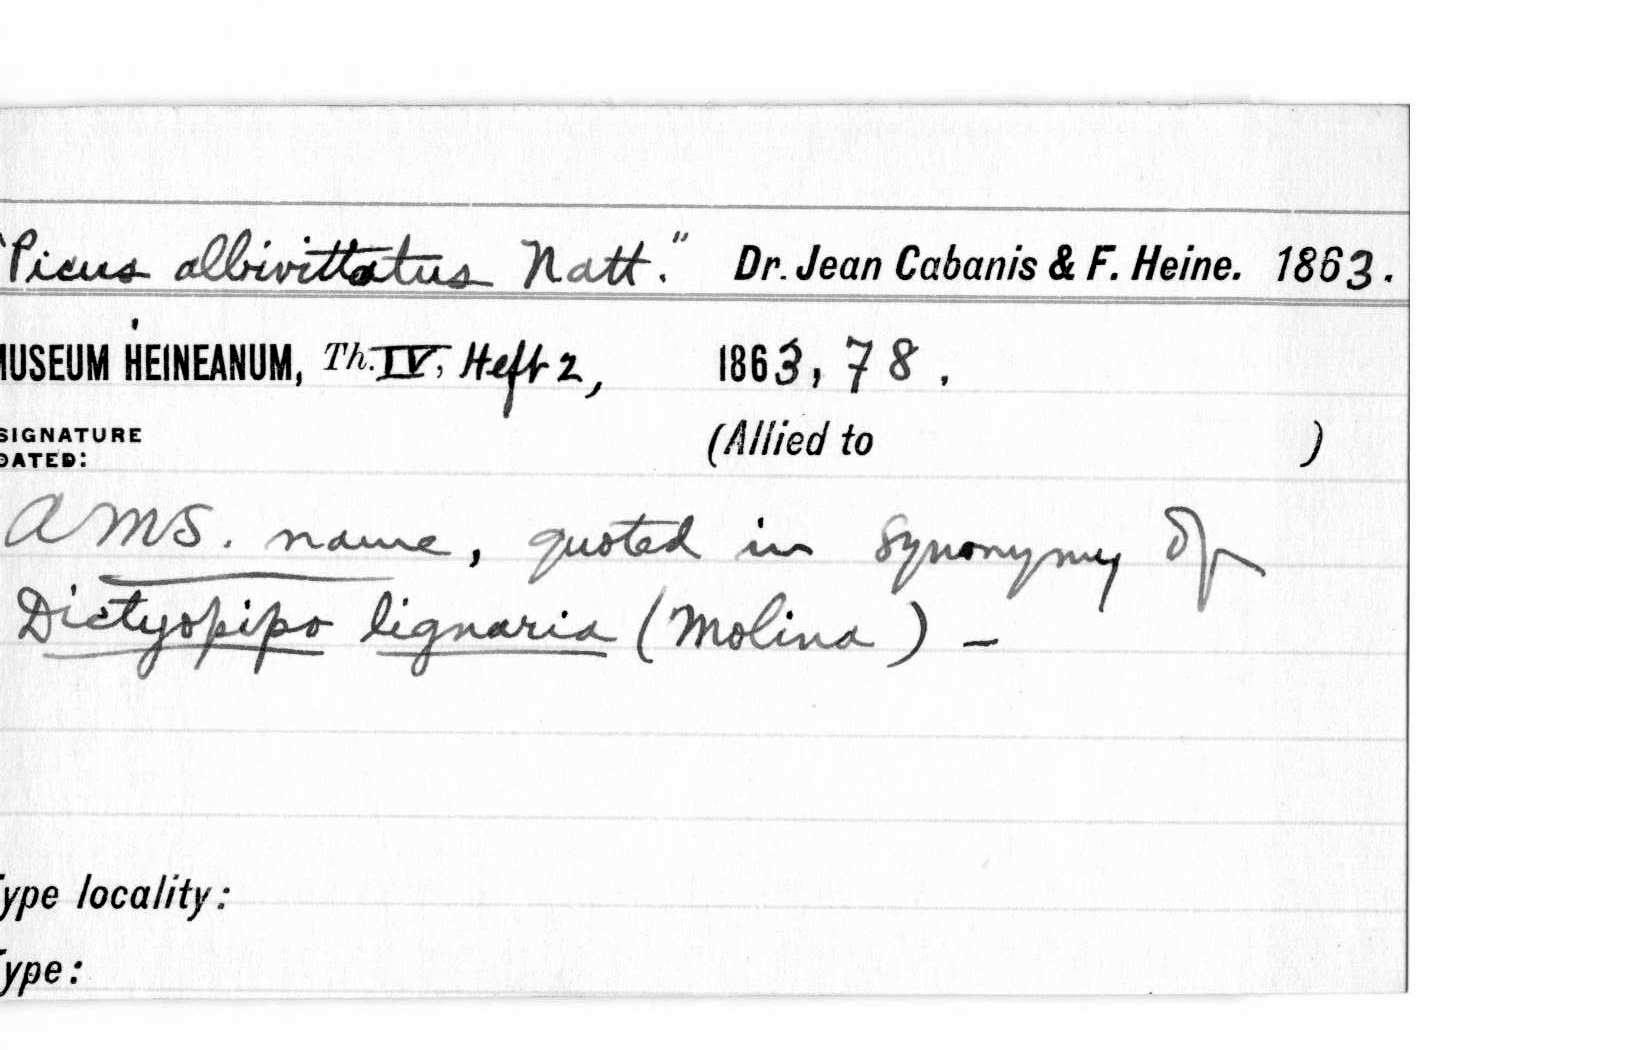 "Picus albivittatus Natt." Dr. Jean Cabanis & F. Heine. 1863.
MUSEUM HEINEANUM, Th. IV, Heft 2, 1863, 78.
SIGNATURE (Allied to )
DATED:
A MS. name, quoted in synonymy of
Dictyopipo lignaria (Molina) –
Type locality:
Type: